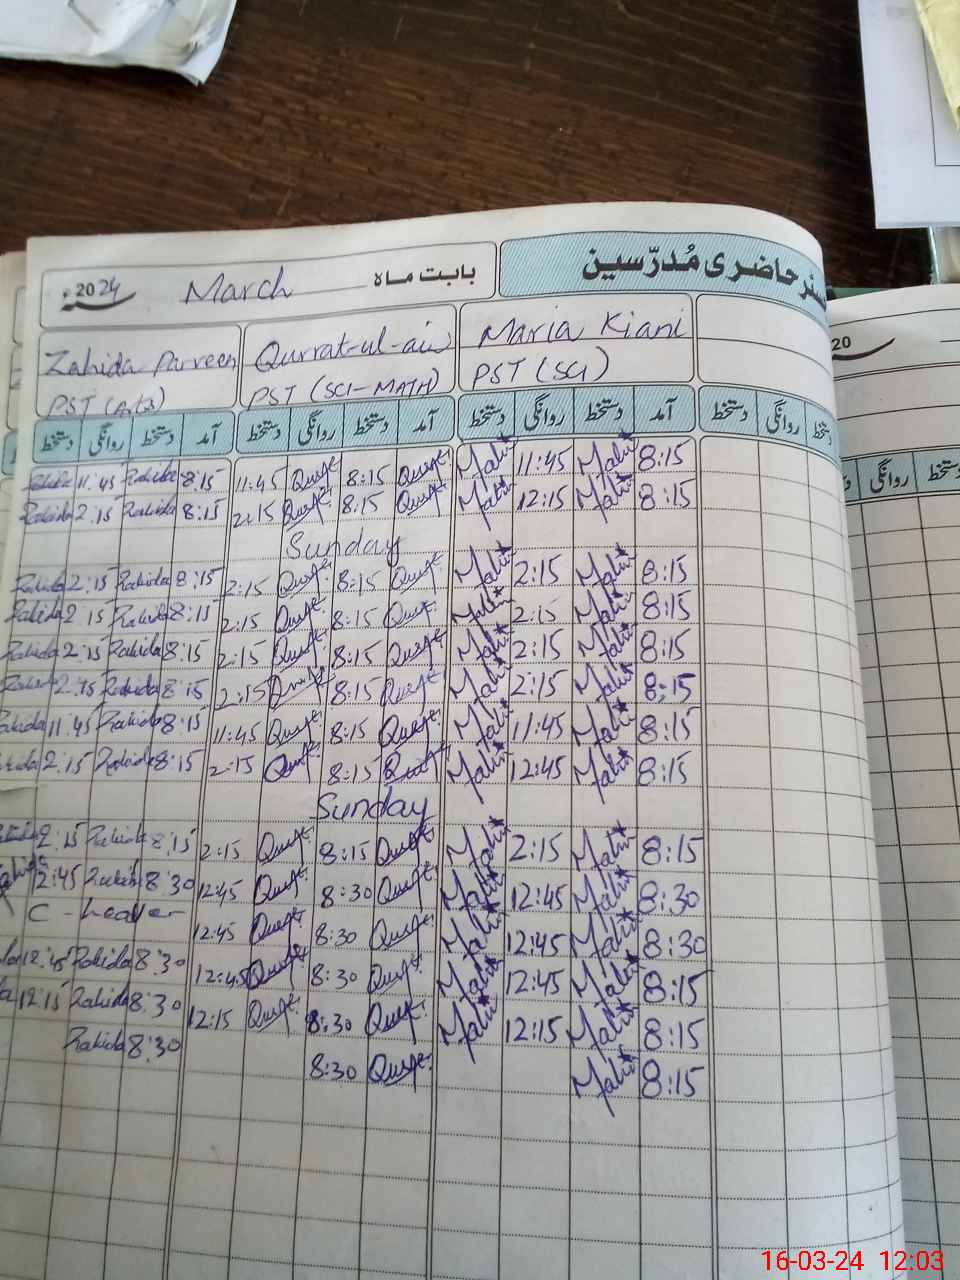 رجسٹر حاضری مُدرّسین
بابت ماہ March 2024ء
Zahida Parveen Qurrat-ul-ain Maria Kiani
PST (Arts) PST (SCI-MATH) PST (SCI)
دستخط روانگی دستخط آمد دستخط روانگی دستخط آمد دستخط روانگی دستخط آمد دستخط روانگی دستخط
11:45 Zahida 8:15 11:45 Qurat 8:15 Qurat Mahi 11:45 Mahi 8:15
Zahida 2:15 Zahida 8:15 2:15 Qurat 8:15 Qurat Mahi 12:15 Mahi 8:15
Sunday
Zahida 2:15 Zahida 8:15 2:15 Qurat 8:15 Qurat Mahi 2:15 Mahi 8:15
Zahida 2:15 Zahida 8:15 2:15 Qurat 8:15 Qurat Mahi 2:15 Mahi 8:15
Zahida 2:15 Zahida 8:15 2:15 Qurat 8:15 Qurat Mahi 2:15 Mahi 8:15
Zahida 2:15 Zahida 8:15 2:15 Qurat 8:15 Qurat Mahi 2:15 Mahi 8:15
Zahida 11:45 Zahida 8:15 11:45 Qurat 8:15 Qurat Mahi 11:45 Mahi 8:15
2:15 Zahida 8:15 2:15 Qurat 8:15 Qurat Mahi 12:45 Mahi 8:15
Sunday
2:15 Zahida 8:15 2:15 Qurat 8:15 Qurat Mahi 2:15 Mahi 8:15
12:45 Zahida 8:30 12:45 Qurat 8:30 Qurat Mahi 12:45 Mahi 8:30
C - leave 12:45 Qurat 8:30 Qurat Mahi 12:45 Mahi 8:30
12:45 Zahida 8:30 12:45 Qurat 8:30 Qurat Mahi 12:45 Mahi 8:15
12:15 Zahida 8:30 12:15 Qurat 8:30 Qurat Mahi 12:15 Mahi 8:15
Zahida 8:30 8:30 Qurat Mahi 8:15
20
روانگی دستخط
16-03-24 12:03